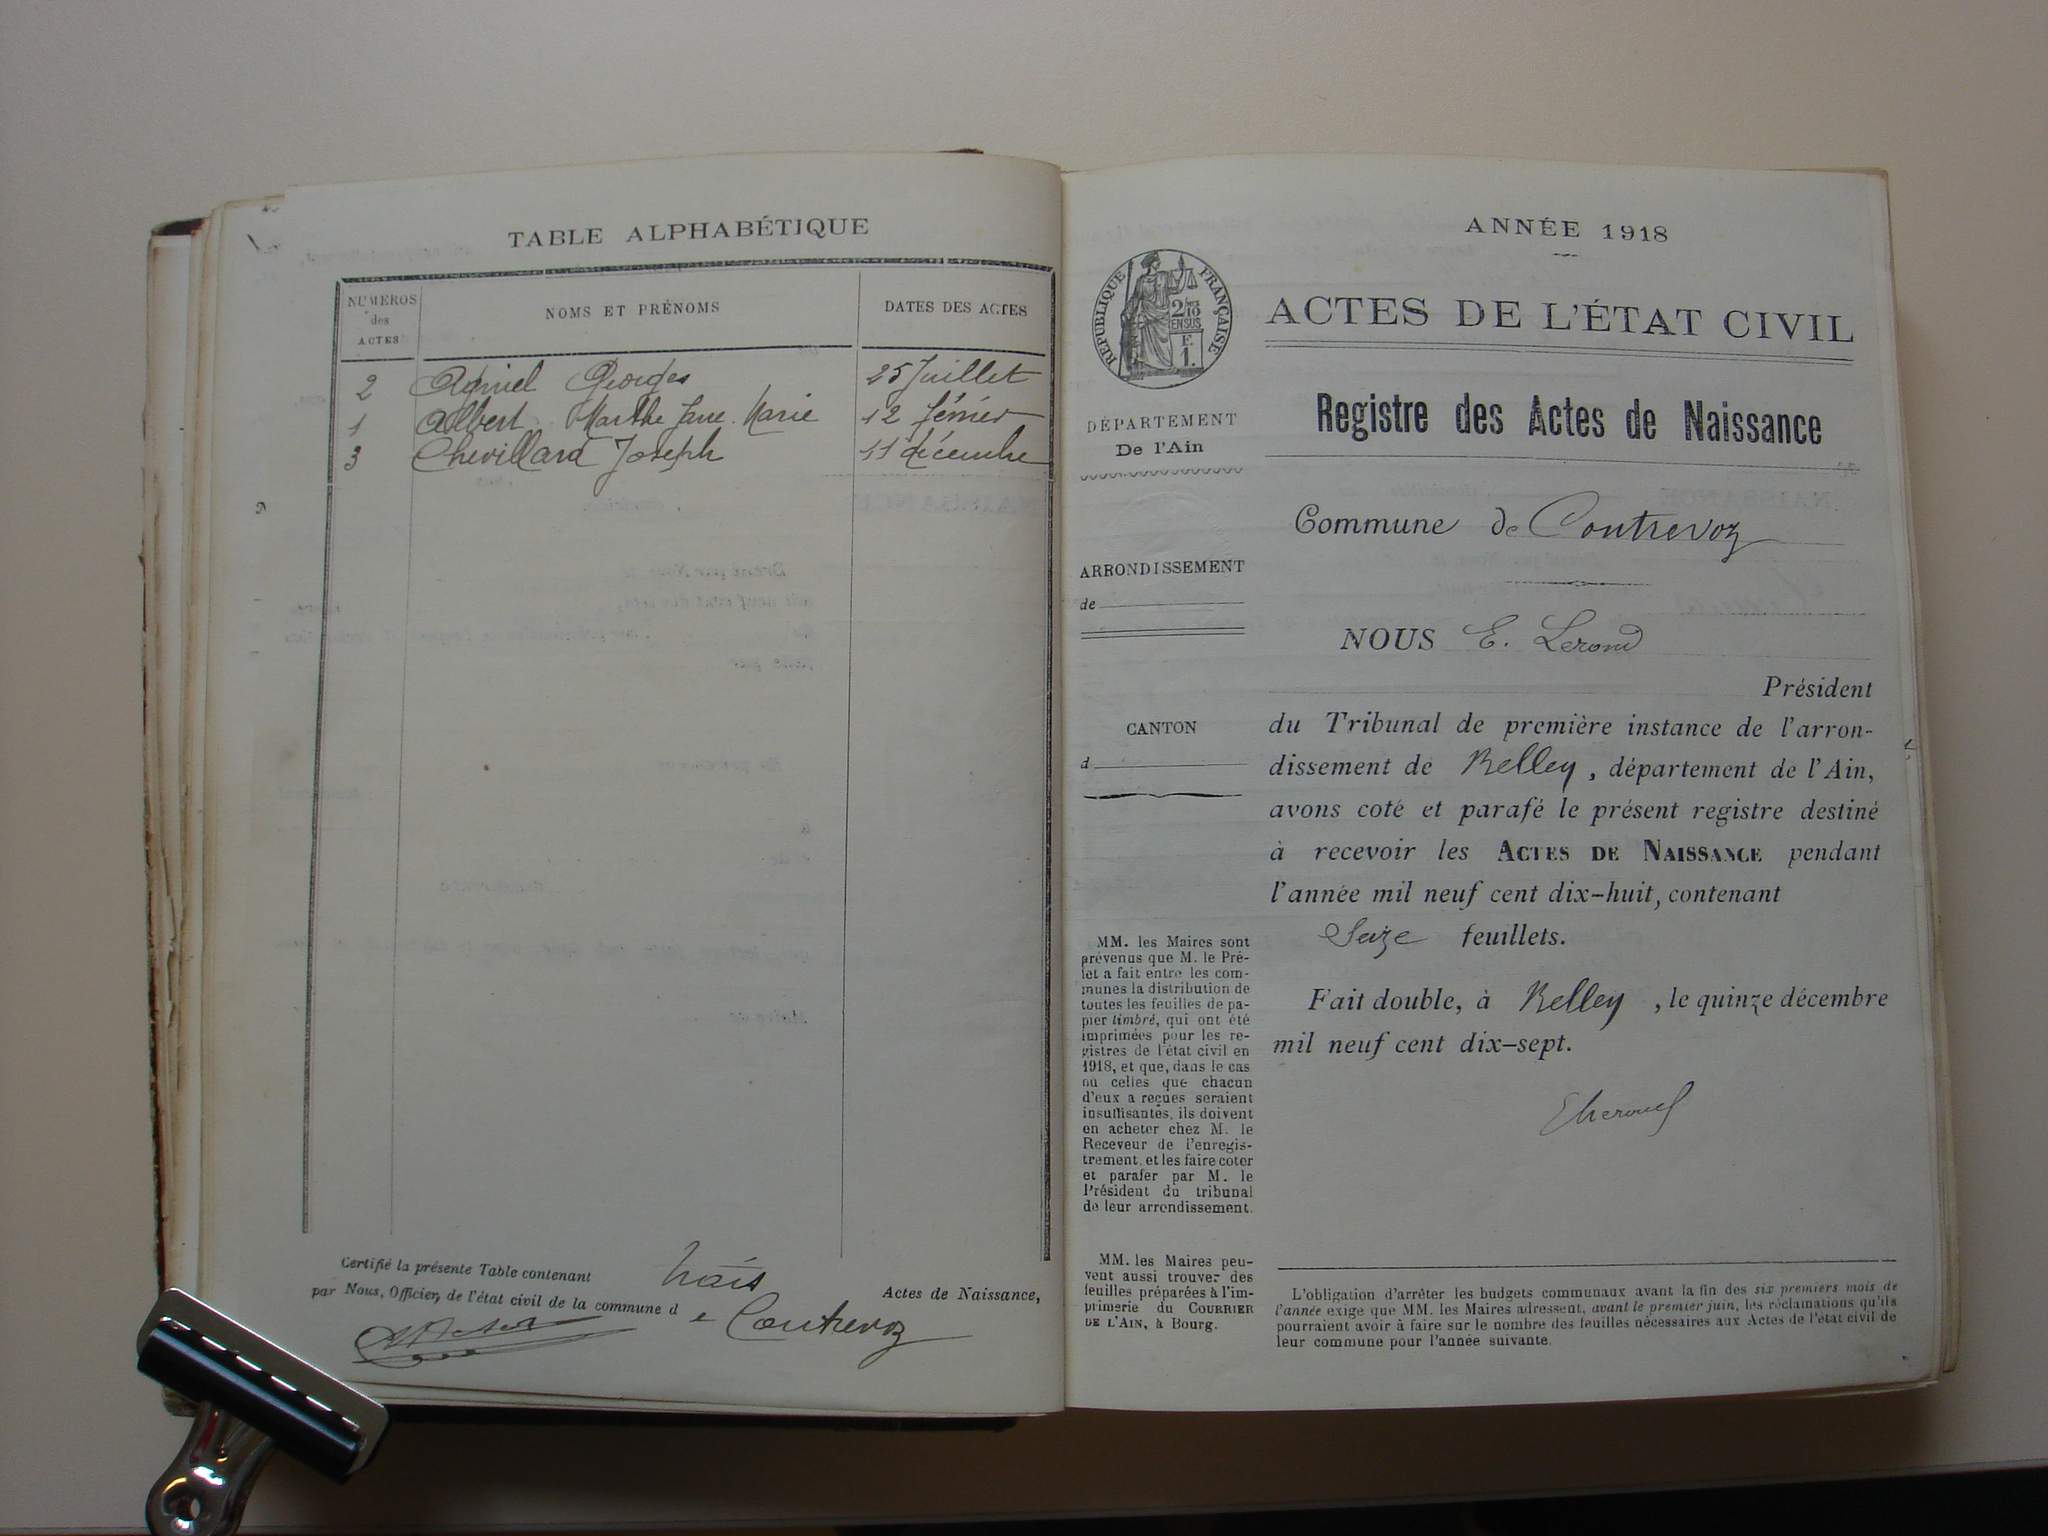 TABLE ALPHABÉTIQUE
NUMÉROS
des
ACTES
NOMS ET PRÉNOMS
DATES DES ACTES
2 Georges 25 Juillet
1 Albert Marthe Jane Marie 12 février
3 Chevillard Joseph 11 décembre
Certifié la présente Table contenant trois Actes de Naissance,
par Nous, Officier, de l'état civil de la commune d e Contrevoz
ANNÉE 1918
RÉPUBLIQUE FRANÇAISE
2/10
EN SUS
E
1.
ACTES DE L'ÉTAT CIVIL
DÉPARTEMENT
De l'Ain
Registre des Actes de Naissance
ARRONDISSEMENT
de
CANTON
d
Commune de Contrevoz
NOUS E. Lerond
Président
du Tribunal de première instance de l'arron-
dissement de Belley, département de l'Ain,
avons coté et parafé le présent registre destiné
à recevoir les ACTES DE NAISSANCE pendant
l'année mil neuf cent dix-huit, contenant
Seize feuillets.
Fait double, à Belley, le quinze décembre
mil neuf cent dix-sept.
MM. les Maires sont
prévenus que M. le Pré-
fet a fait entre les com-
munes la distribution de
toutes les feuilles de pa-
pier timbré, qui ont été
imprimées pour les re-
gistres de l'état civil en
1918, et que, dans le cas
où celles que chacun
d'eux a reçues seraient
insuffisantes, ils doivent
en acheter chez M. le
Receveur de l'enregis-
trement, et les faire coter
et parafer par M. le
Président du tribunal
de leur arrondissement.
MM. les Maires peu-
vent aussi trouver des
feuilles préparées à l'im-
primerie du COURRIER
DE L'AIN, à Bourg.
L'obligation d'arrêter les budgets communaux avant la fin des six premiers mois de
l'année exige que MM. les Maires adressent, avant le premier juin, les réclamations qu'ils
pourraient avoir à faire sur le nombre des feuilles nécessaires aux Actes de l'état civil de
leur commune pour l'année suivante.